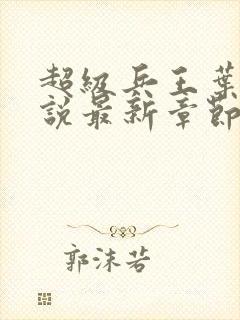 超级兵王葉
說最新章節
郭沫若